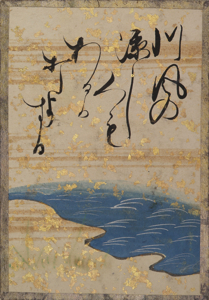 川風の
涼しくも
あるか
打よする